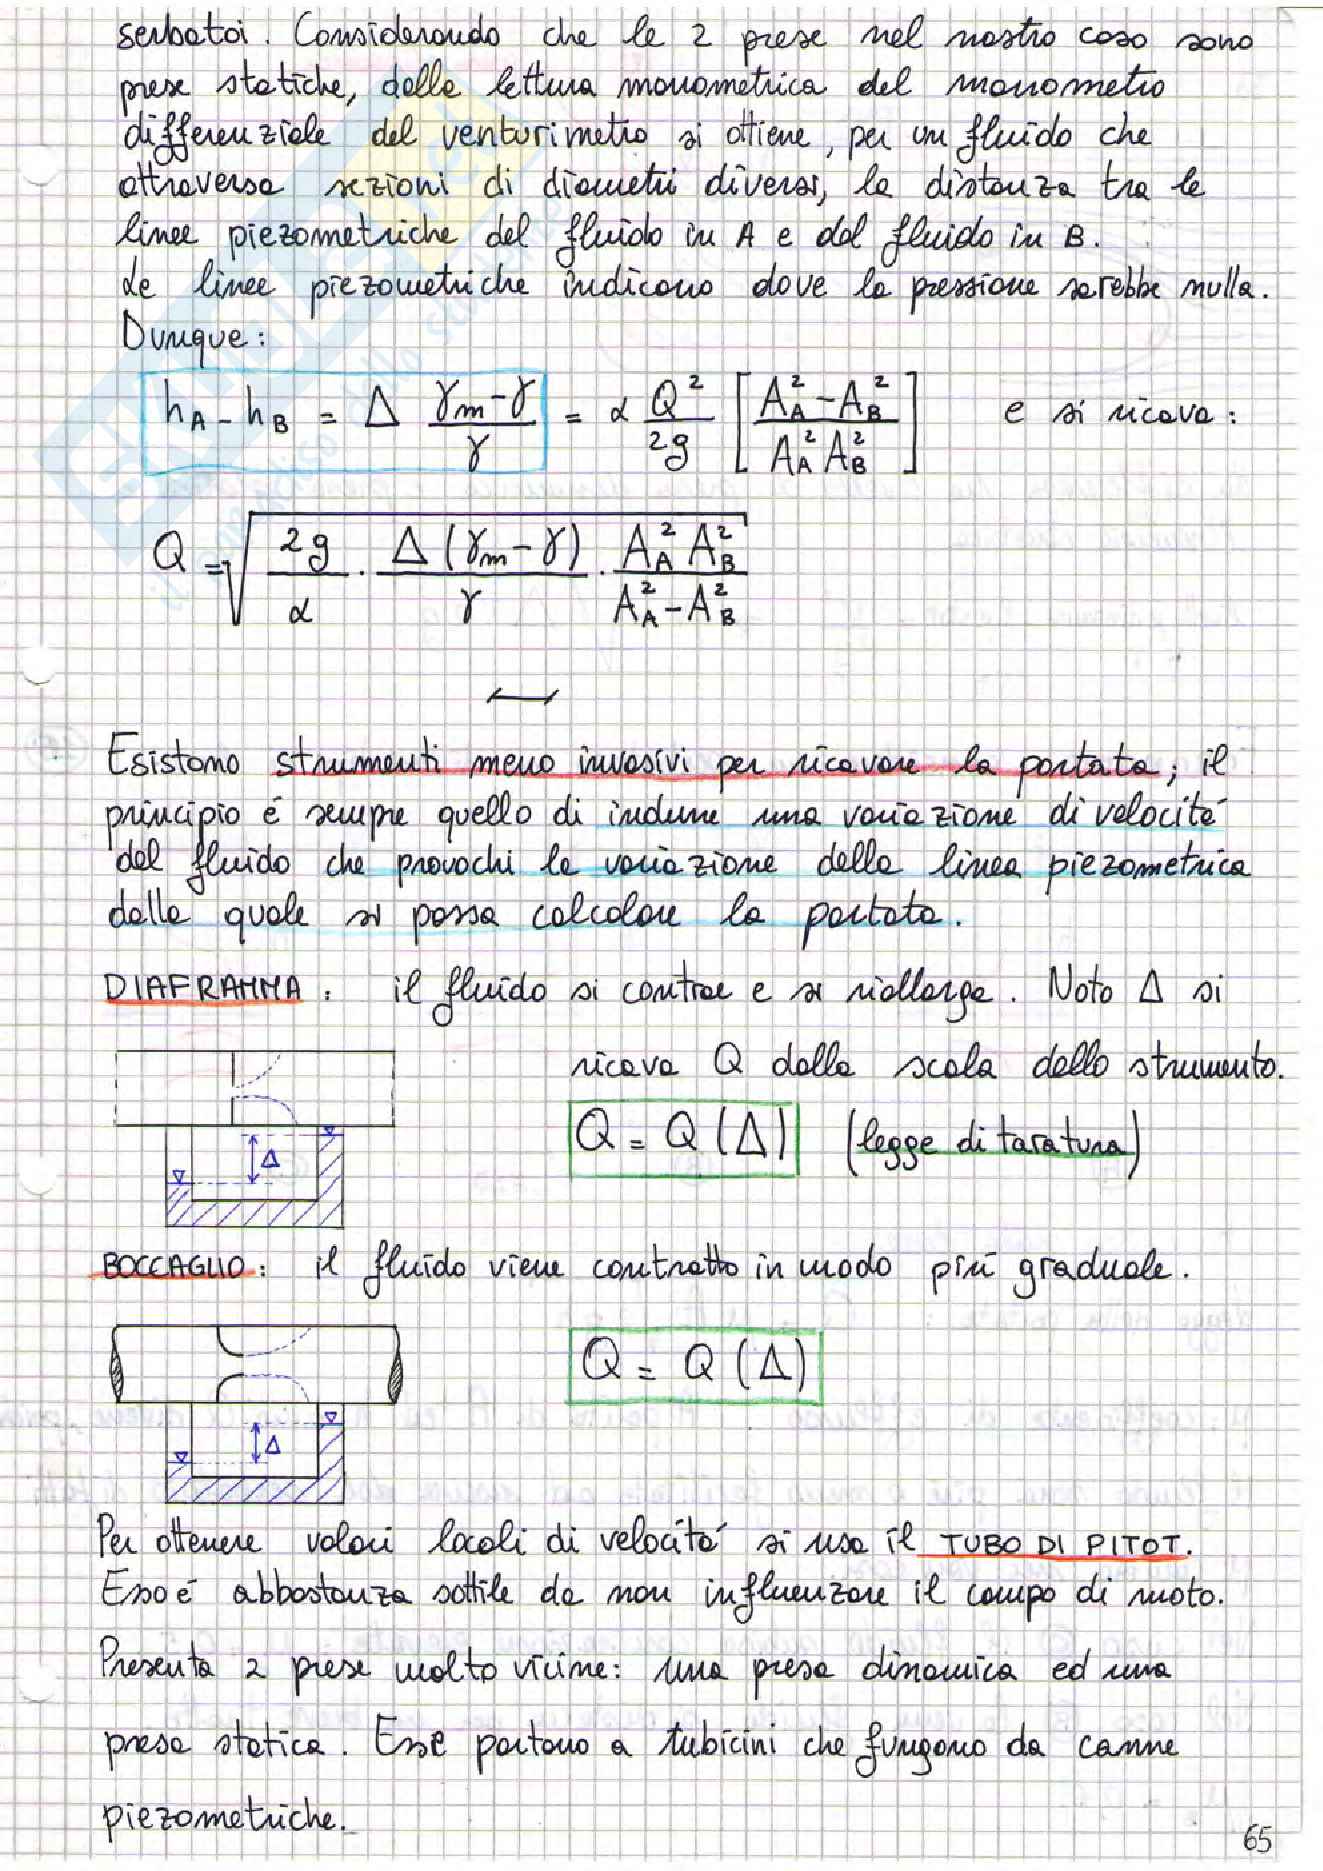 serbatoi. Considerando che le 2 prese nel nostro caso sono
prese statiche, dalla lettura manometrica del manometro
differenziale del venturimetro si ottiene, per un fluido che
attraversa sezioni di diametri diversi, la distanza tra le
linee piezometriche del fluido in A e del fluido in B.
Le linee piezometriche indicano dove la pressione sarebbe nulla.
Dunque:
h_A - h_B = Δ (γm - γ)/γ = α Q²/2g [(A_A² - A_B²)/(A_A² A_B²)] e si ricava:
Q = √(2g/α · Δ(γm - γ)/γ · A_A² A_B²/(A_A² - A_B²))
Esistono strumenti meno invasivi per ricavare la portata; il
principio é sempre quello di indurre una variazione di velocitá
del fluido che provochi la variazione della linea piezometrica
dalla quale si possa calcolare la portata.
DIAFRAMMA: il fluido si contrae e si riallarga. Noto Δ si
ricava Q dalla scala dello strumento.
Q = Q(Δ) (legge di taratura)
Δ
BOCCAGLIO: il fluido viene contratto in modo piú graduale.
Q = Q(Δ)
Δ
Per ottenere valori locali di velocitá si usa il TUBO DI PITOT.
Esso é abbastanza sottile da non influenzare il campo di moto.
Presenta 2 prese molto vicine: una presa dinamica ed una
presa statica. Esse portano a tubicini che fungono da canne
piezometriche.
65